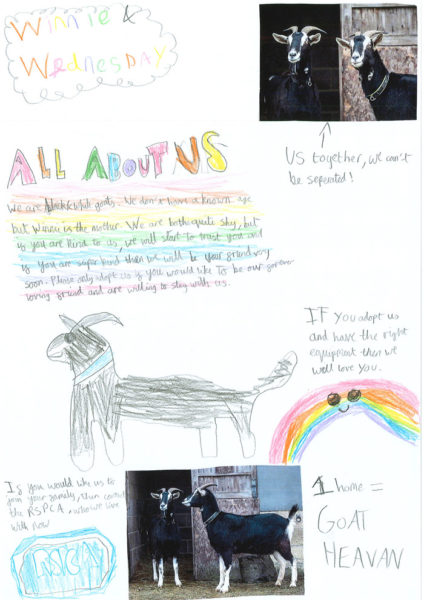 Winnie &
Wednesday
Us together, we can't
be seperated!
ALL ABOUT US
We are black & white goats. We don't have a known age
but Winnie is the mother. We are both quite shy, but
if you are kind to us, we will start to trust you and
if you are super kind then we will be your friend very
soon. Please only adopt us if you would like to be our forever
loving friend and are willing to stay with us.
IF you adopt us
and have the right
equippment then we
will love you.
If you would like us to
join your family, then contact
the RSPCA, who we live
with now
RSPCA
1 home =
GOAT
HEAVAN